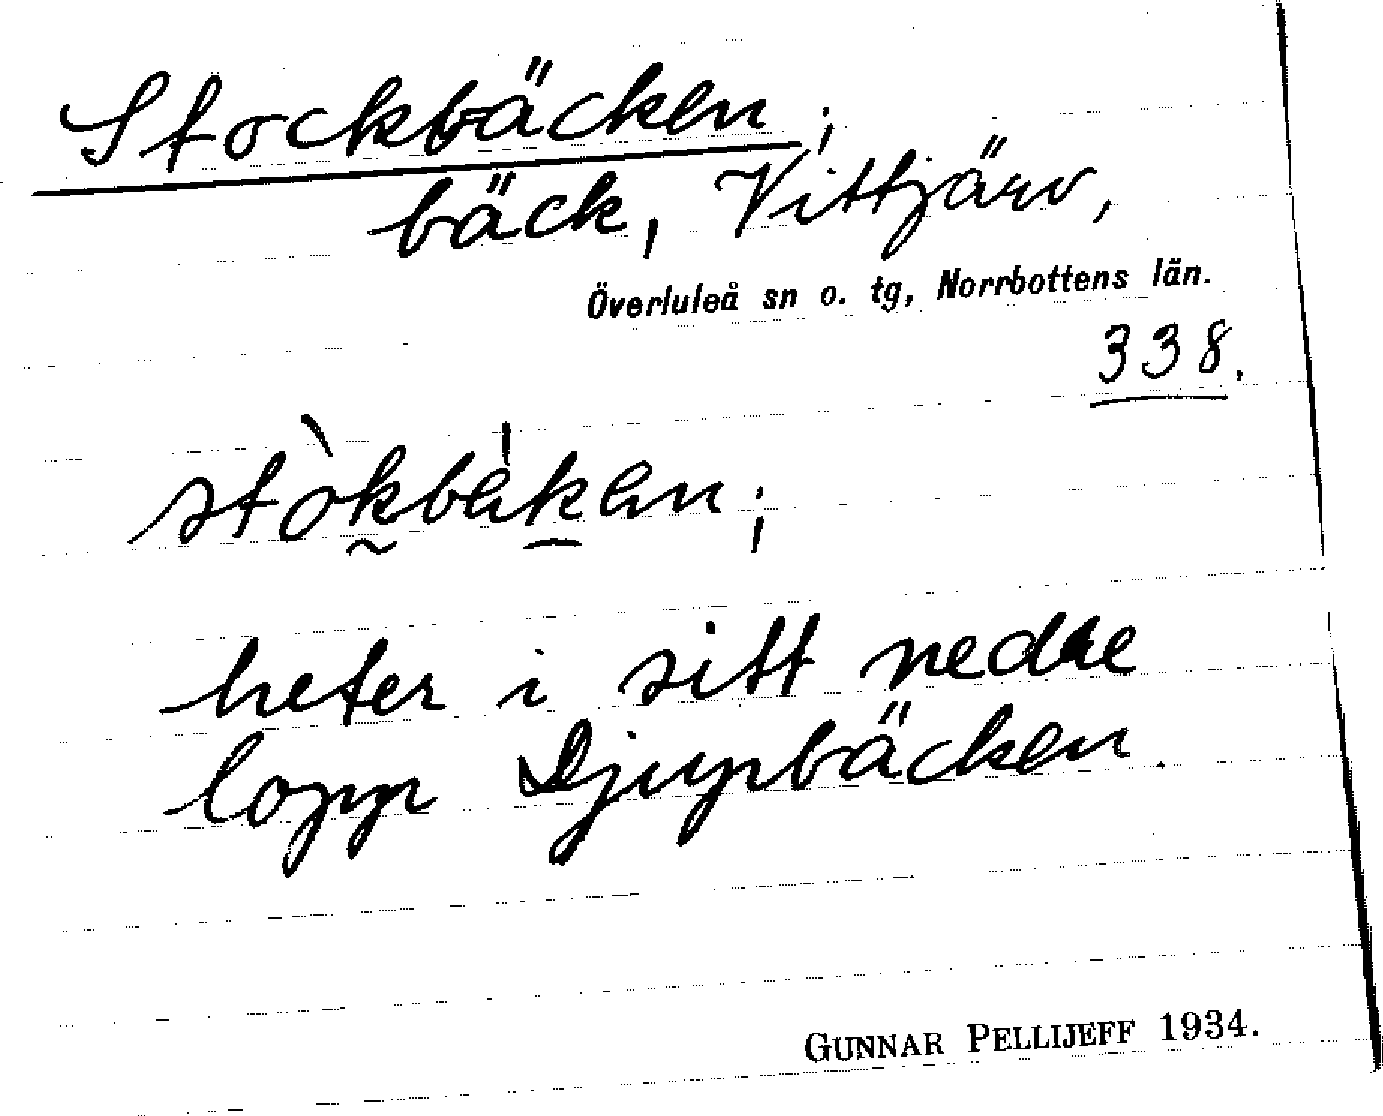 Stockbäcken;
bäck, Vittjärv,
Överluleå sn o. tg, Norrbottens län.
338.
stòk̰bèk̠en;
heter i sitt nedre
lopp Djupbäcken.
GUNNAR PELLIJEFF 1934.